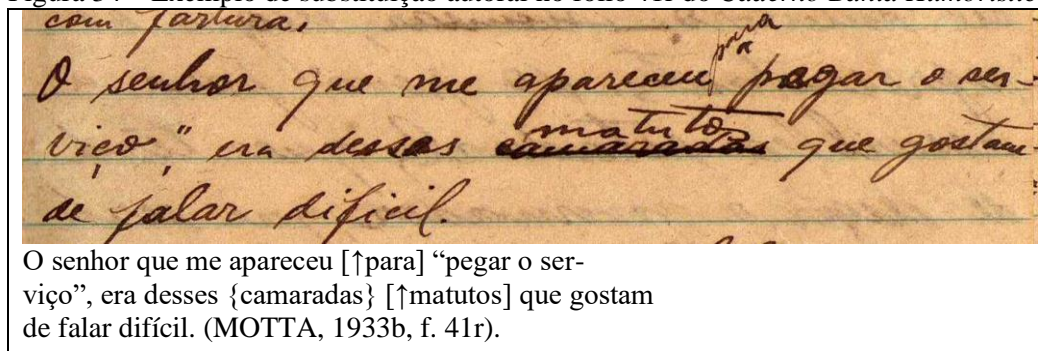 com fartura,
para
O senhor que me apareceu pegar o ser-
matutos
viço", era desses camaradas que gostam
de falar dificil.
O senhor que me apareceu [↑para] “pegar o ser-
viço”, era desses {camaradas} [↑matutos] que gostam
de falar difícil. (MOTTA, 1933b, f. 41r).